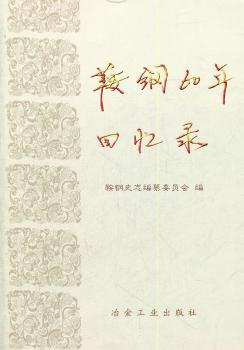 鞍钢60年
回忆录
鞍钢史志编纂委员会 编
冶金工业出版社